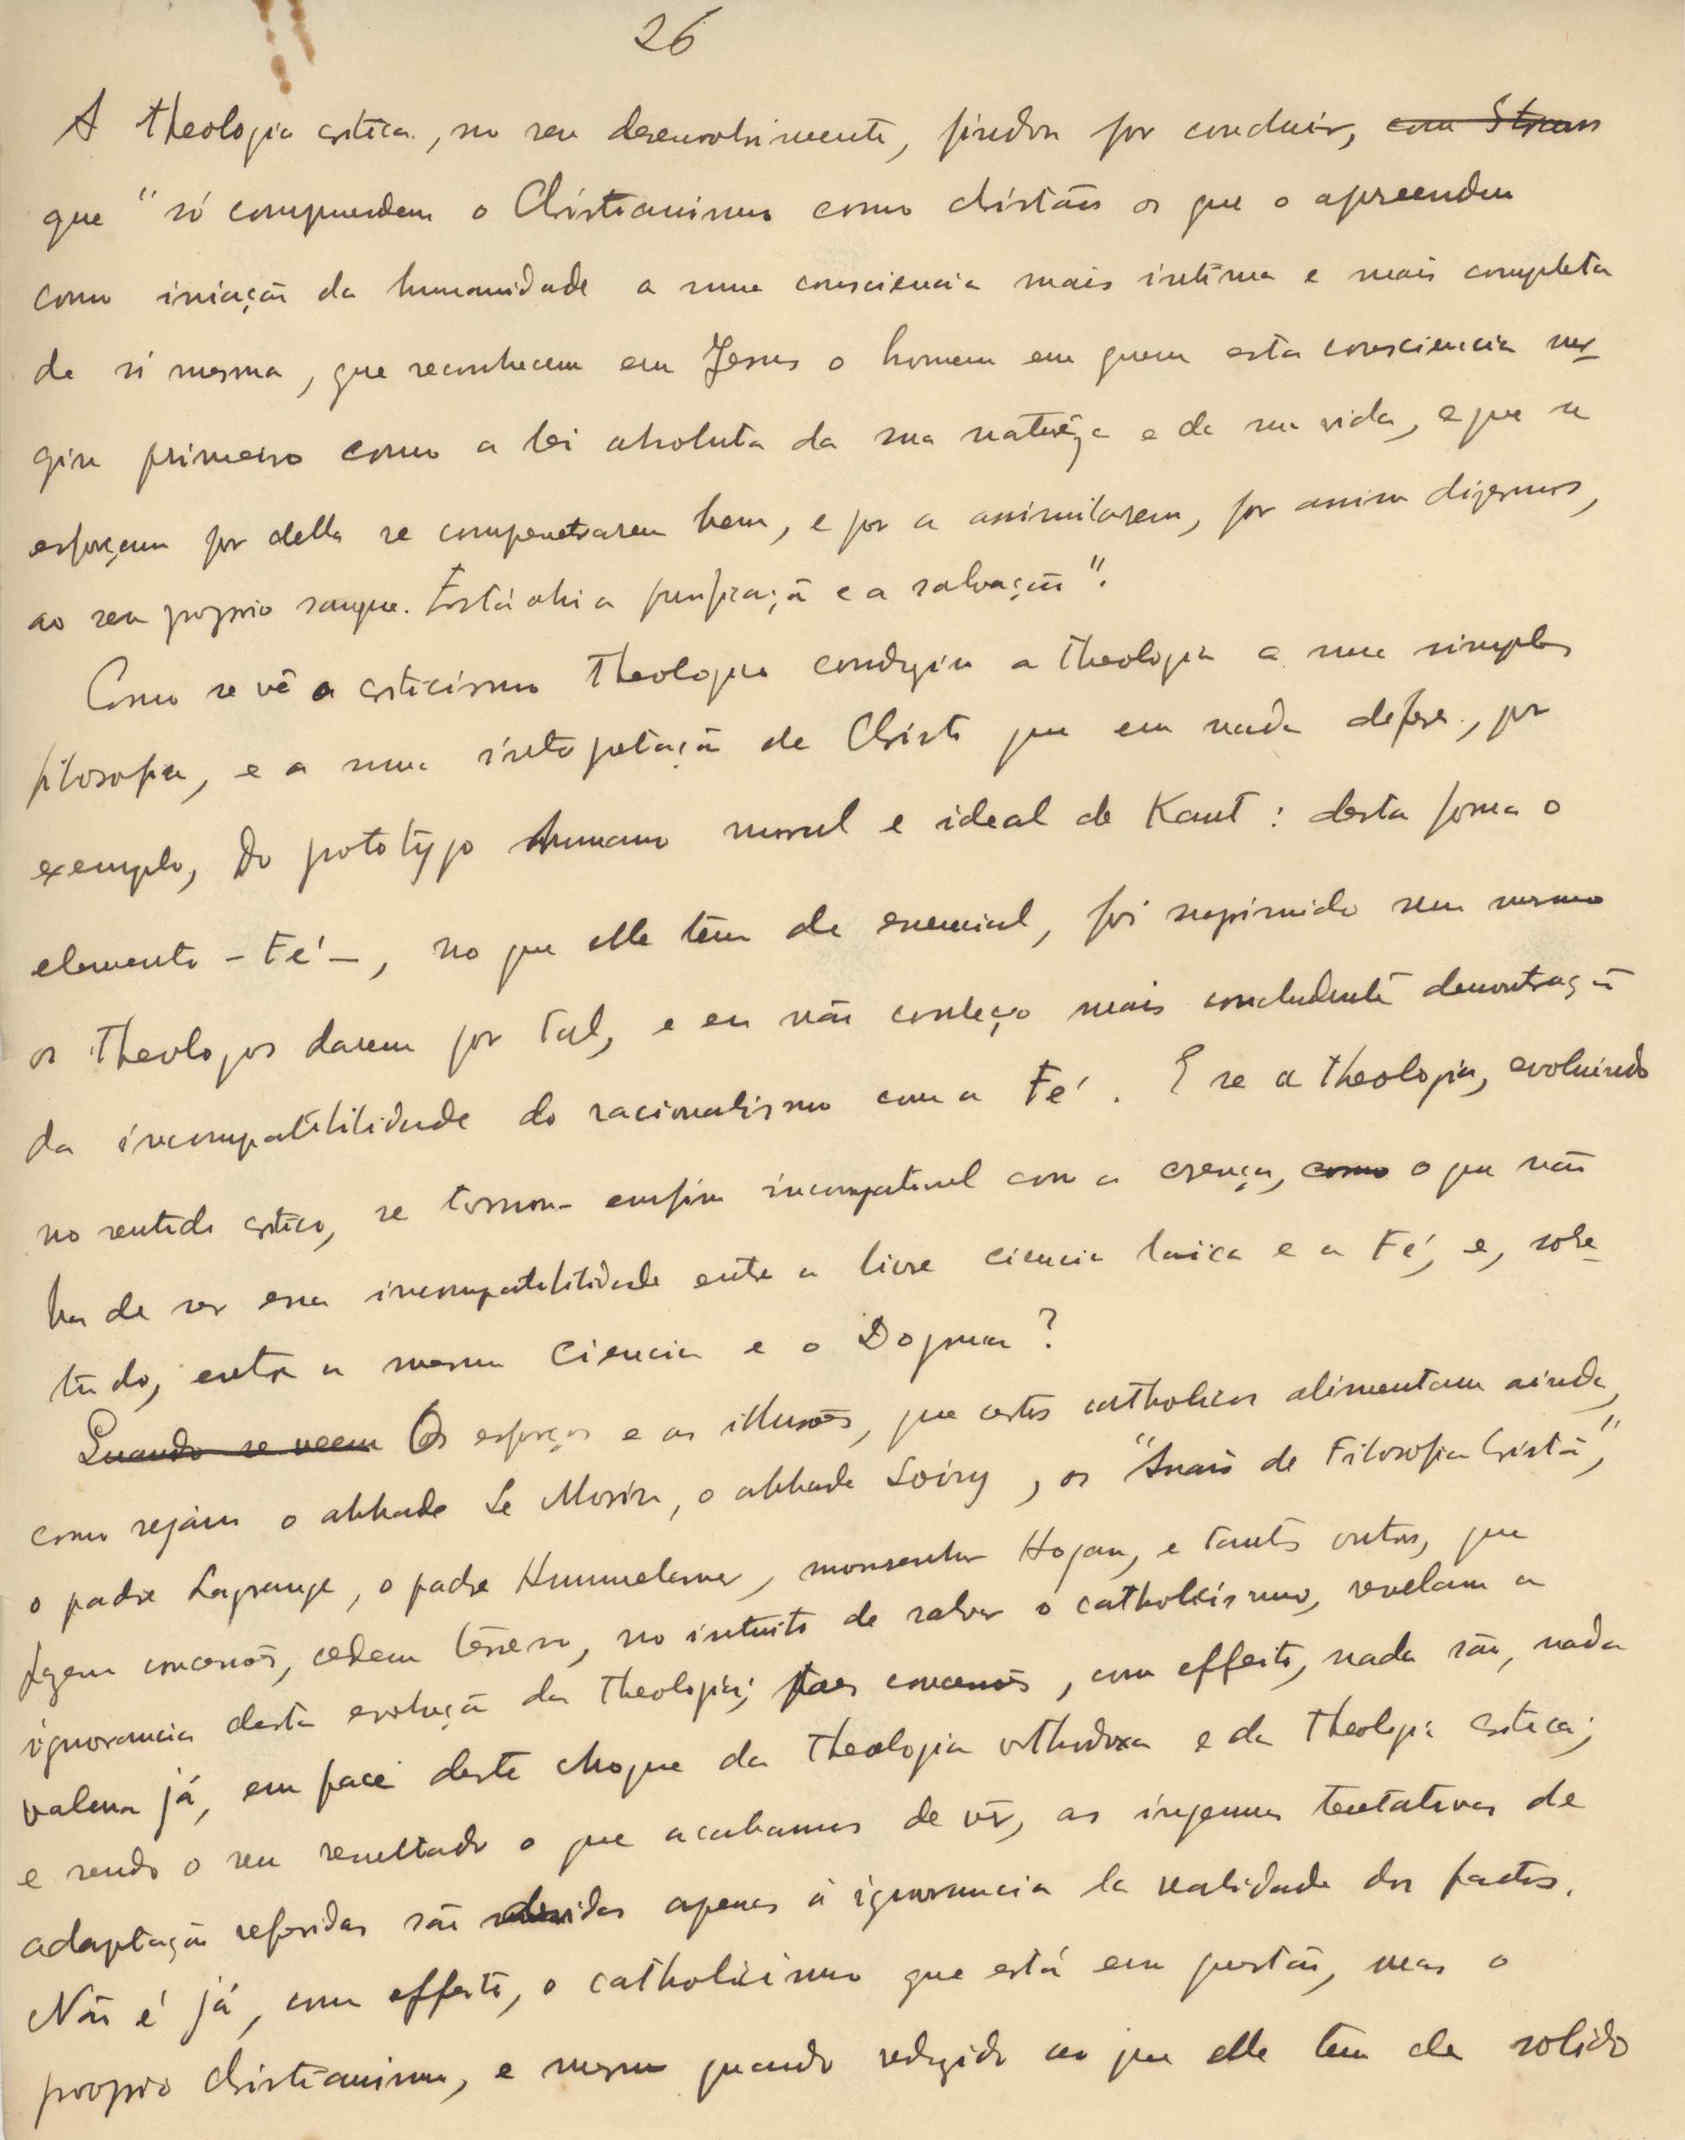 26
A theologia critica, no seu desenvolvimento, findou por concluir, com Strauss
que "só comprendem o Christianismo como christãos os que o apreendem
como iniciação da humanidade a uma consciencia mais intima e mais completa
de si mesma, que reconhecem em Jesus o homem em quem esta consciencia sur-
giu primeiro como a lei absoluta da sua natureza e da sua vida, e que se
esforçam por della se compenetrarem bem, e por a assimilarem, por assim dizermos,
ao seu proprio sangue. Está ahi a purificação e a salvação".
Como se vê o criticismo theologico conduziu a theologia a uma simples
filosofia, e a uma interpretação de Christo que em nada defere, por
exemplo, do prototypo humano moral e ideal de Kant: desta forma o
elemento - Fé -, no que elle tem de essencial, foi suprimido sem mesmo
os theologos darem por tal, e eu não conheço mais concludente demonstração
da incompatibilidade do racionalismo com a Fé. E se a theologia, evoluindo
no sentido critico, se tornou- emfim incompativel com a crença, como o que não
ha de ser essa incompatibilidade entre a livre ciencia laica e a Fé, e, sobre-
tudo, entre a mesma Ciencia e o Dogma?
Quando se veem Os esforços e as illusões, que certos catholicos alimentam ainda,
como sejam o abbade Le Morin, o abbade Loisy, os "Anais de Filosofia Cristã",
o padre Lagrange, o padre Hummelauer, monsenhor Hogan, e tantos outros, que
fazem concessões, cedem terreno, no intuito de salvar o catholicismo, revelam a
ignorancia desta evolução da theologia; taes concessões, com effeito, nada são, nada
valem já, em face deste choque da theologia orthodoxa e da theologia critica;
e sendo o seu resultado o que acabamos de vêr, as ingenuas tentativas de
adaptação referidas são devidas apenas á ignorancia da realidade dos factos.
Não é já, com effeito, o catholicismo que está em questão, mas o
proprio christianismo, e mesmo quando reduzido ao que elle tem de solido